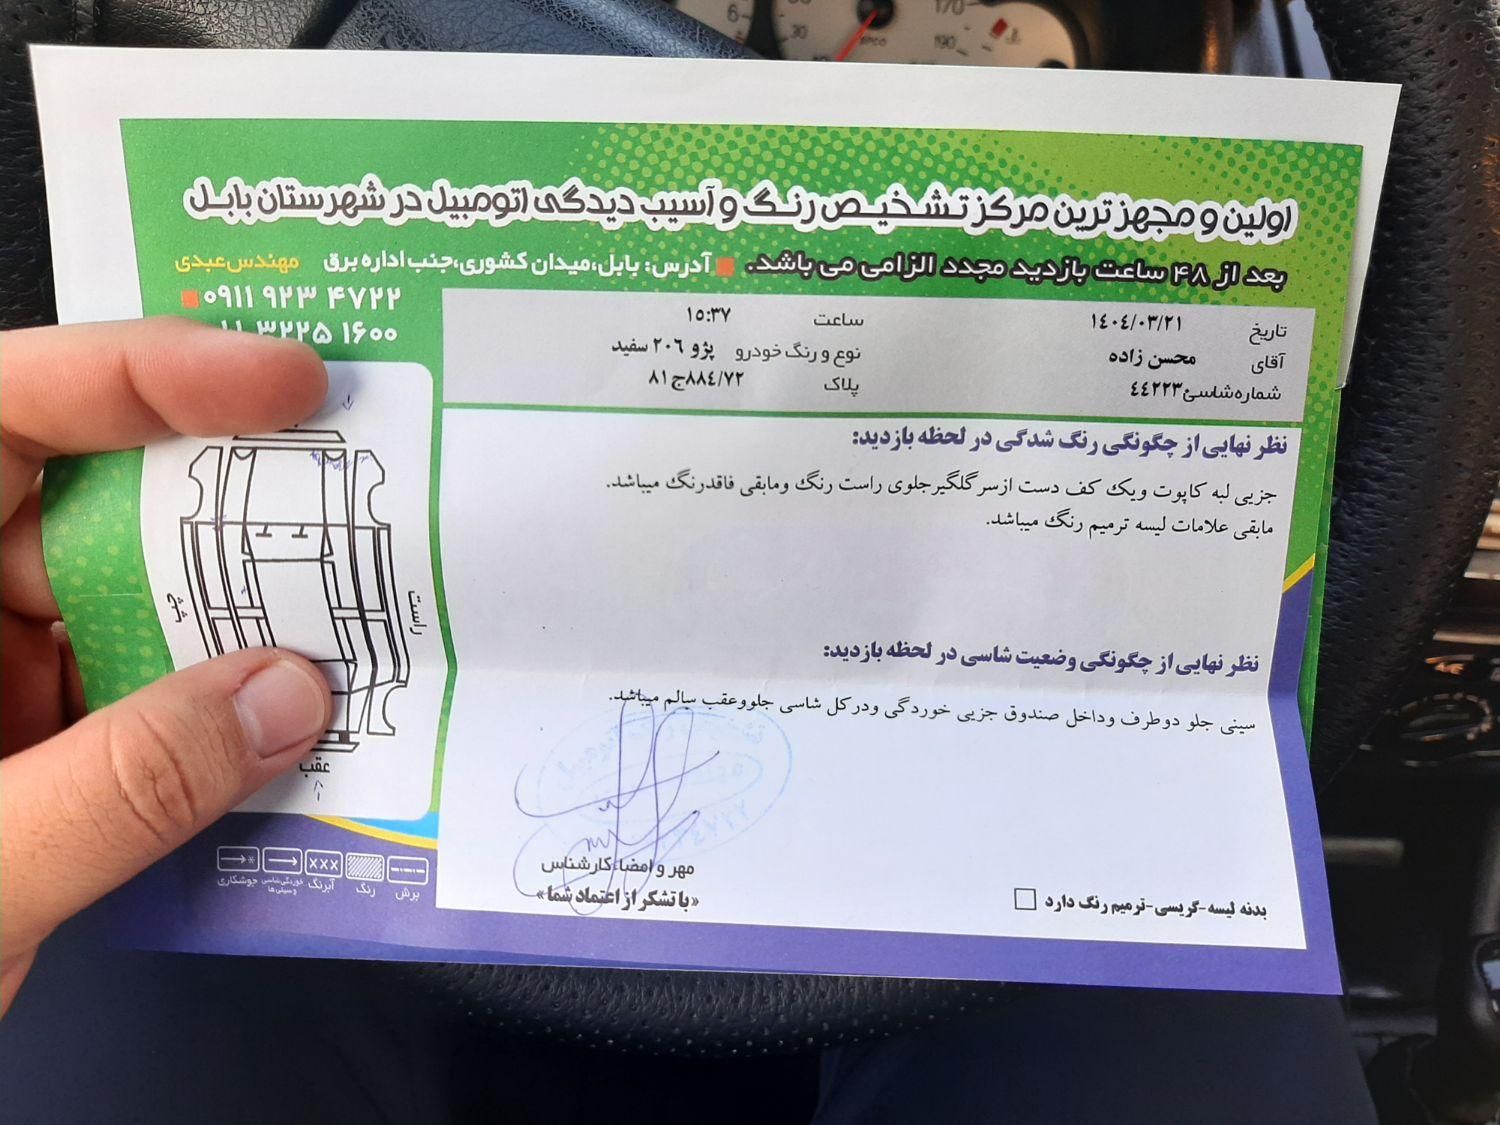 اولین و مجهز ترین مرکز تشخیص رنگ و آسیب دیدگی اتومبیل در شهرستان بابل
بعد از ۴۸ ساعت بازدید مجدد الزامی می باشد. آدرس: بابل،میدان کشوری،جنب اداره برق مهندس عبدی
۰۹۱۱ ۹۲۳ ۴۷۲۲
۳۲۲۵ ۱۶۰۰
تاریخ ۱۴۰۴/۰۳/۲۱ ساعت ۱۵:۳۷
آقای محسن زاده نوع و رنگ خودرو پژو ۲۰۶ سفید
شماره شاسی ۴۴۲۲۳ پلاک ۸۸۴/۷۲ج۸۱
نظر نهایی از چگونگی رنگ شدگی در لحظه بازدید:
جزیی لبه کاپوت ویک کف دست ازسرگلگیرجلوی راست رنگ ومابقی فاقدرنگ میباشد.
مابقی علامات لیسه ترمیم رنگ میباشد.
نظر نهایی از چگونگی وضعیت شاسی در لحظه بازدید:
سینی جلو دوطرف وداخل صندوق جزیی خوردگی ودرکل شاسی جلووعقب سالم میباشد.
مهر و امضاء کارشناس
«با تشکر از اعتماد شما»
بدنه لیسه-گریسی-ترمیم رنگ دارد
راست
چپ
عقب
برش
رنگ
آبرنگ
خوردگی شاسی و سینی ها
جوشکاری